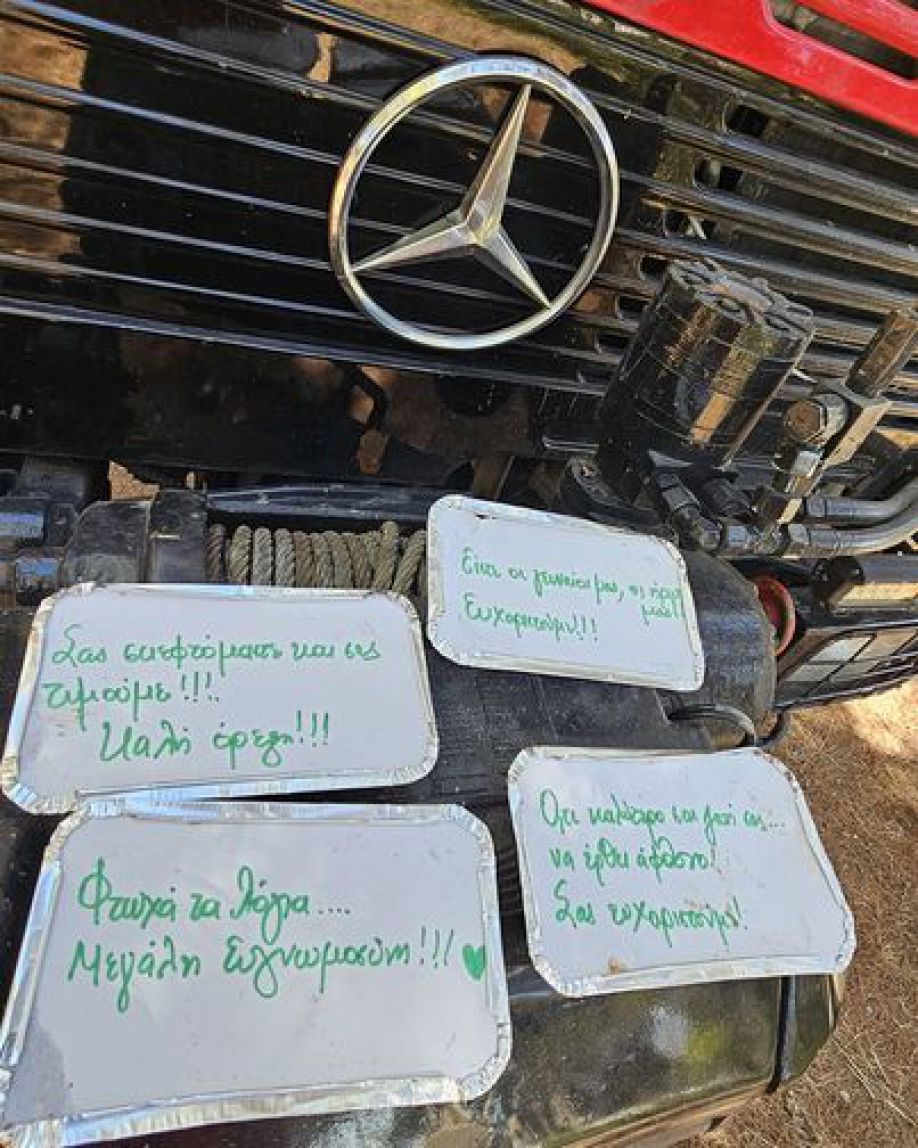 Είστε οι γενναίοι μας, οι ήρωές
μας!
Ευχαριστούμε!!!
Σας σκεφτόμαστε και σας
τιμούμε!!!
Καλή όρεξη!!!
Ότι καλύτερο στη ζωή σας...
να έρθει άφθονο!
Σας ευχαριστούμε!
Φτωχά τα λόγια....
Μεγάλη Ευγνωμοσύνη!!!